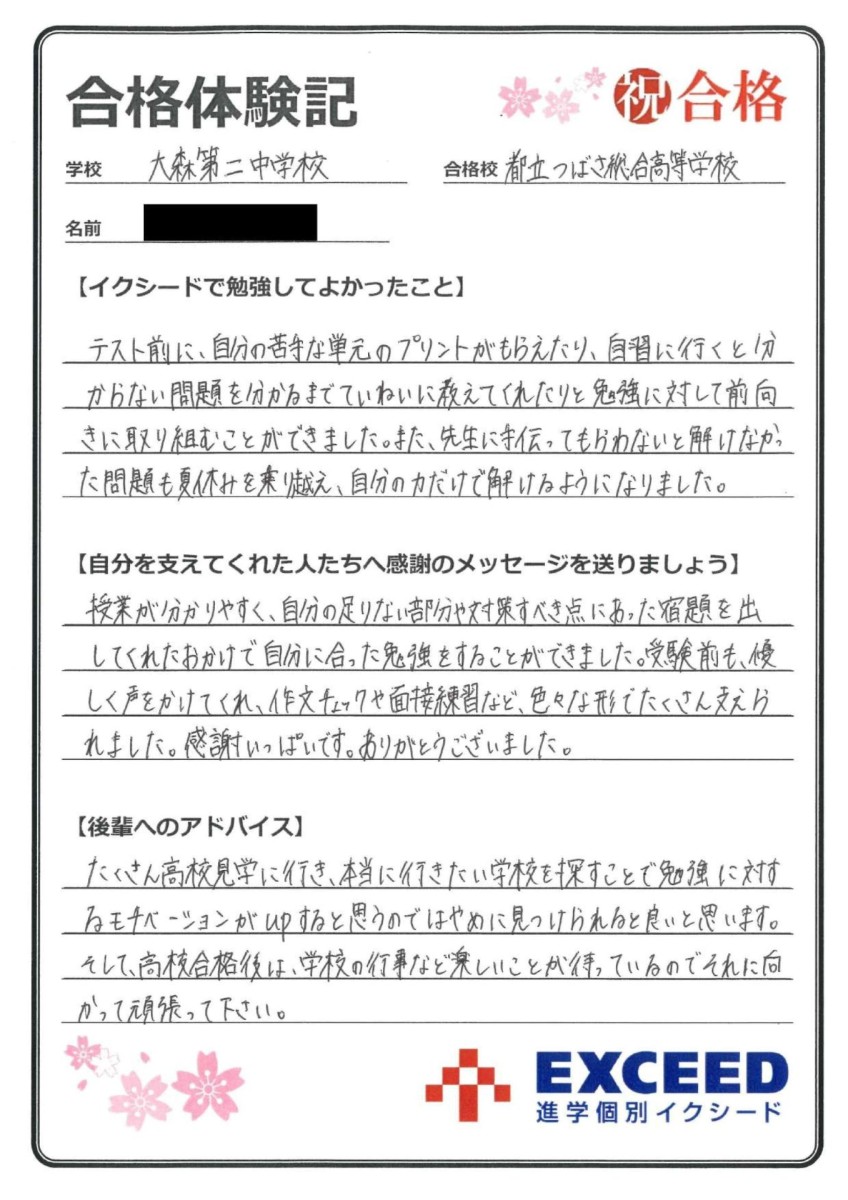 合格体験記
祝 合格
学校 大森第二中学校
合格校 都立つばさ総合高等学校
名前
【イクシードで勉強してよかったこと】
テスト前に、自分の苦手な単元のプリントがもらえたり、自習に行くと分
からない問題を分かるまでていねいに教えてくれたりと勉強に対して前向
きに取り組むことができました。また、先生に手伝ってもらわないと解けなかっ
た問題も夏休みを乗り越え、自分の力だけで解けるようになりました。
【自分を支えてくれた人たちへ感謝のメッセージを送りましょう】
授業が分かりやすく、自分の足りない部分や対策すべき点にあった宿題を出
してくれたおかげで自分に合った勉強をすることができました。受験前も、優
しく声をかけてくれ、作文チェックや面接練習など、色々な形でたくさん支えら
れました。感謝いっぱいです。ありがとうございました。
【後輩へのアドバイス】
たくさん高校見学に行き、本当に行きたい学校を探すことで勉強に対す
るモチベーションがupすると思うのではやめに見つけられると良いと思います。
そして、高校合格後は、学校の行事など楽しいことが待っているのでそれに向
かって頑張って下さい。
EXCEED
進学個別イクシード